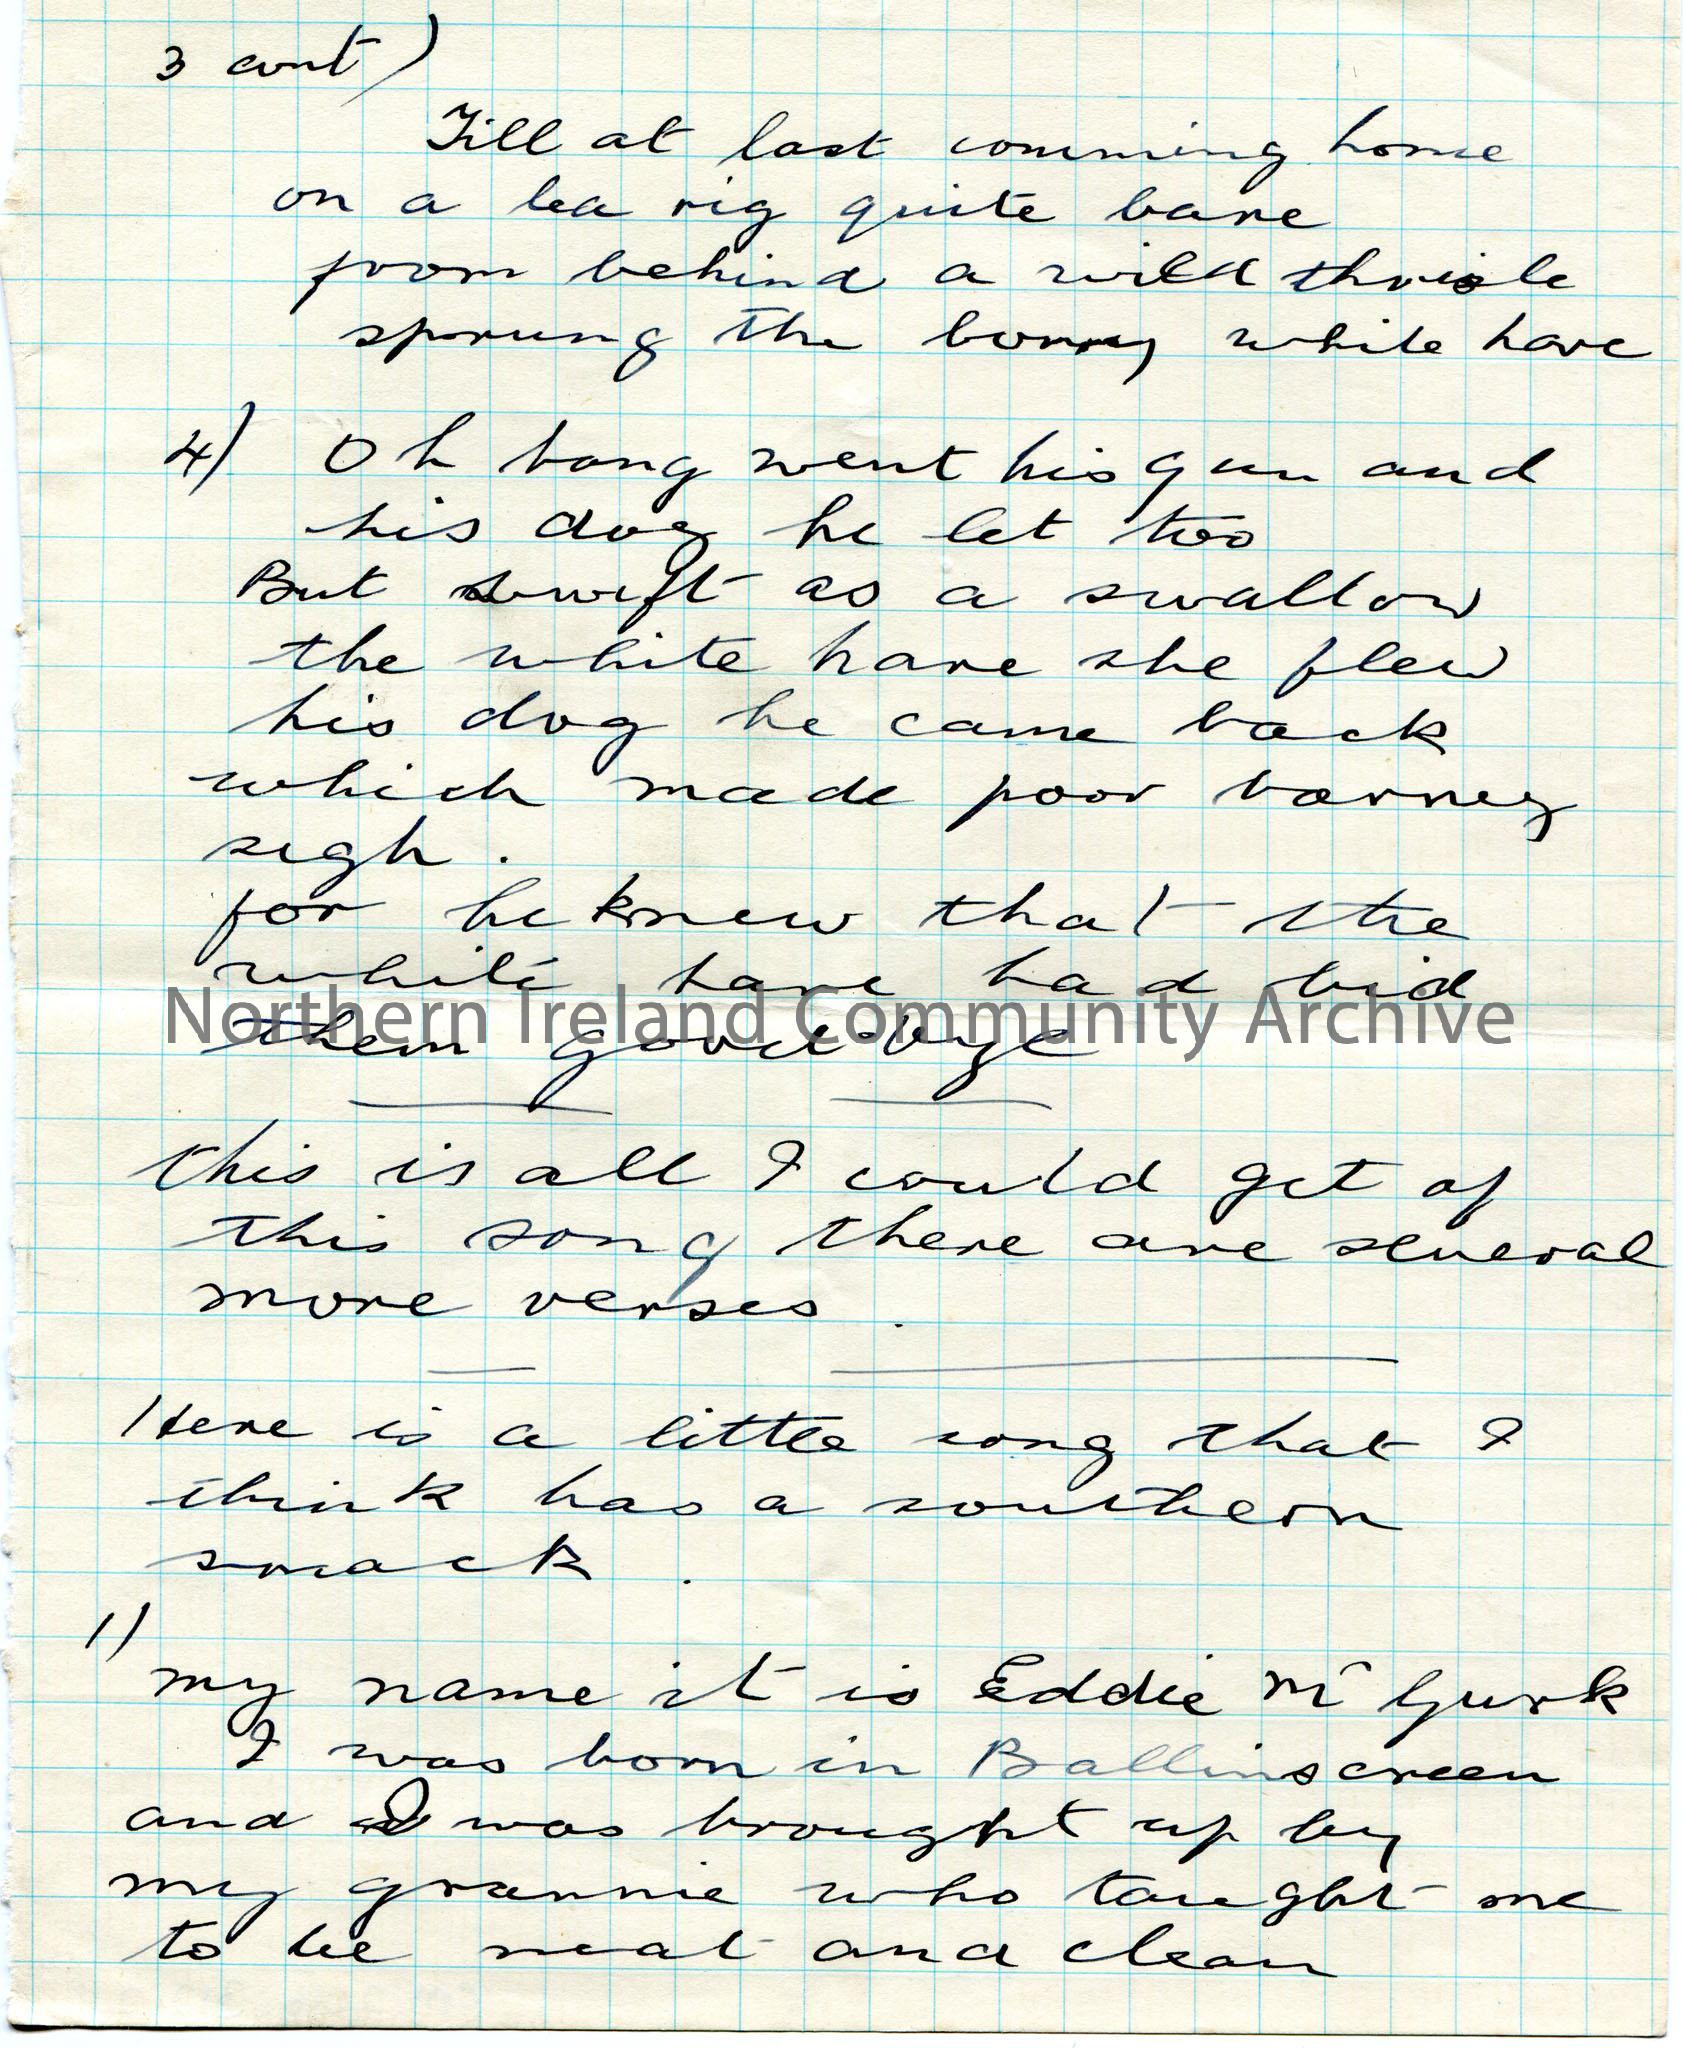 3 cont)
Till at last comming home
on a lea rig quite bare
from behind a wild thrisle
sprung the bonny white hare
4) Oh bang went his gun and
his dog he let too
But swift as a swallow
the white hare she flew
his dog he came back
which made poor barney
sigh.
for he knew that the
white hare had bid
Northern Ireland Community Archive
them good-bye
this is all I could get of
this song there are several
more verses.
Here is a little song that I
think has a southern
smack.
1)
my name it is Eddie Mc Gurk
I was born in Ballinscreen
and I was brought up by
my grannie who taught me
to be neat and clean